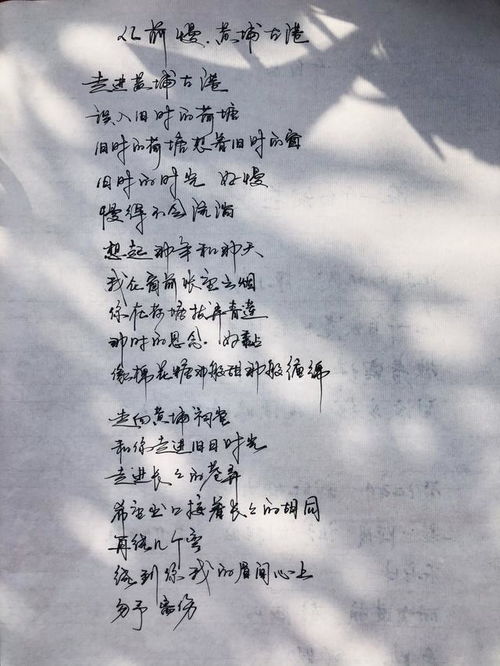 从前慢.黄埔古港
走进黄埔古港
误入旧时的荷塘
旧时的荷塘想着旧时的窗
旧时的时光 好慢
慢得不会流淌
想起那年和那天
我在窗前眺望云烟
你在荷塘拔弄青莲
那时的思念.好黏
像棉花糖那般甜那般缠绵
走向黄埔祠堂
和你走进旧日时光
走进长长的巷弄
希望出口接着长长的胡同
再绕几个弯
绕到你我的眉间心上
勿予